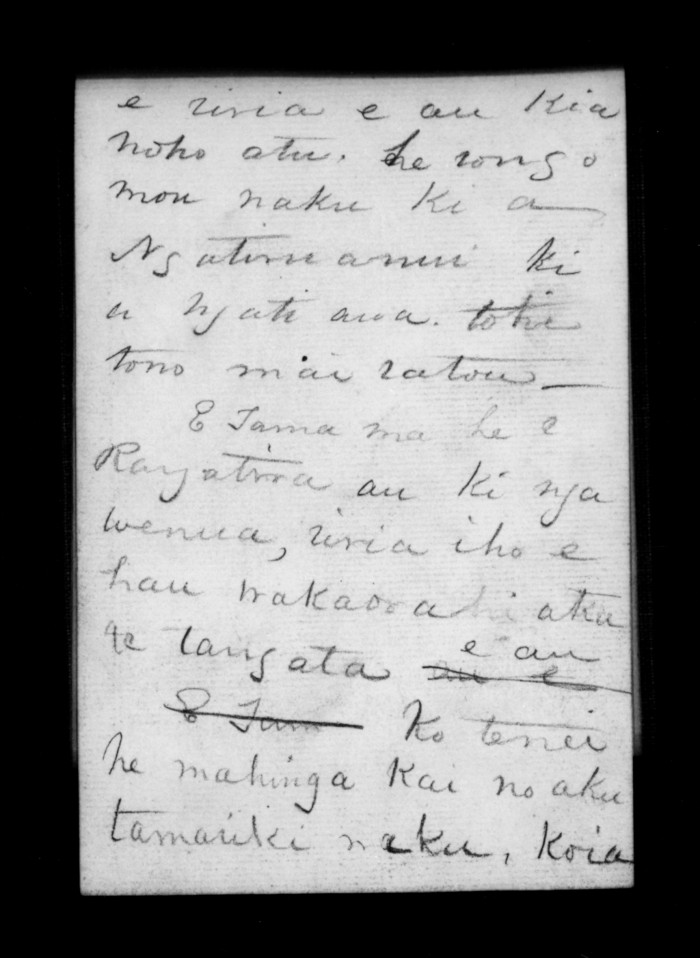 e riria e au kia
noho atu. he rongo
mou naku ki a
Ngatiruanui ki
a Ngati awa. 
tono mai ratou —
E Tama ma he
Rangatira au ki nga
wenua, riria iho e
hau wakaora atu
te tangata e au
E Tam Ko tenei
he mahinga kai no aku
tamariki naku, Koia